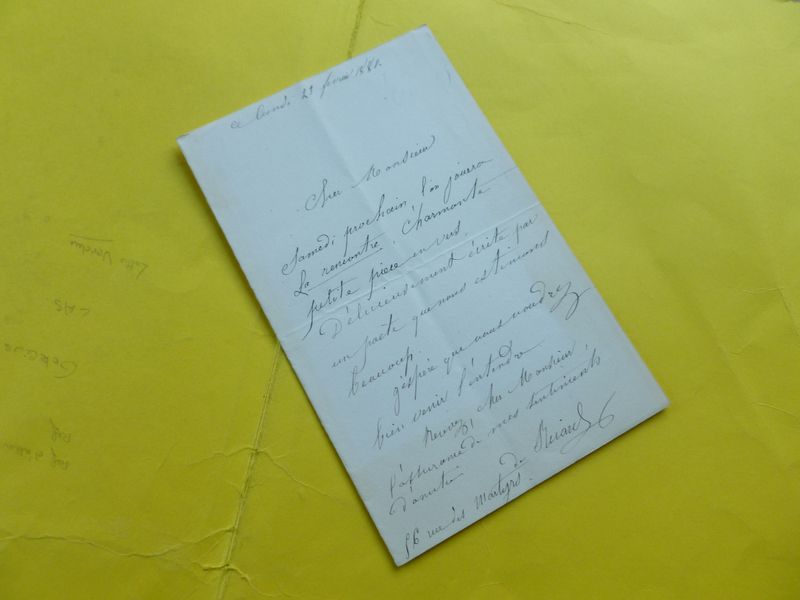 ce Lundi 23 février 1881.
Cher Monsieur
Samedi prochain, l'on jouera
La rencontre, Charmante
petite pièce en vers,
Délicieusement écrite par
un poète que nous estimons
beaucoup.
J'espère que vous voudrez
bien venir l'entendre
Recevez, cher Monsieur
l'assurance de mes sentiments
d'amitié
de
rue des Martyrs.
LAS